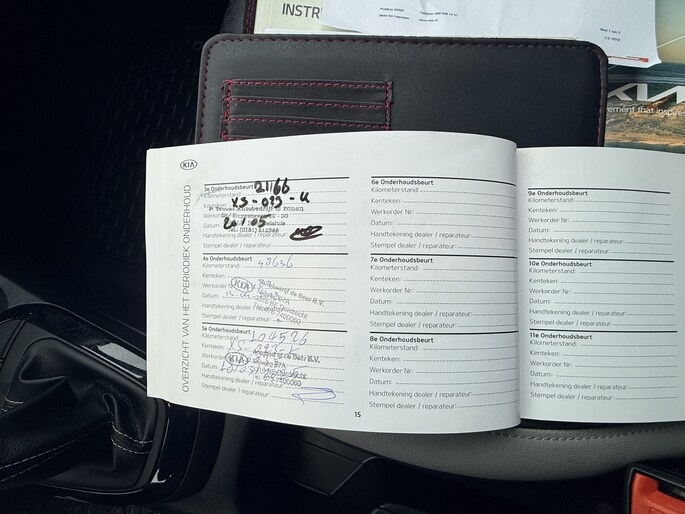 INSTR
KIA
ment that inspires
KIA
OVERZICHT VAN HET PERIODIEK ONDERHOUD
3e Onderhoudsbeurt
21166
Kilometerstand
Kenteken: XS-093-U
Werkorder
Datum
Handtekening dealer / reparateur
Stempel dealer / reparateur:
4e Onderhoudsbeurt
Kilometerstand
Kenteken:
Werkorder Nr
KIA
Datum
Handtekening dealer / reparateur
Stempel dealer / reparateur
5e Onderhoudsbeurt
Kilometerstand: 104526
Kenteken: XS
Werkorder
KIA
de Beer B.V.
Datum:
Handtekening dealer / reparateur
Stempel dealer / reparateur:
6e Onderhoudsbeurt
Kilometerstand:
Kenteken:
Werkorder Nr:
Datum:
Handtekening dealer / reparateur:
Stempel dealer / reparateur:
7e Onderhoudsbeurt
Kilometerstand:
Kenteken:
Werkorder Nr:
Datum:
Handtekening dealer / reparateur:
Stempel dealer / reparateur:
8e Onderhoudsbeurt
Kilometerstand:
Kenteken:
Werkorder Nr:
Datum:
Handtekening dealer / reparateur:
Stempel dealer / reparateur:
15
9e Onderhoudsbeurt
Kilometerstand:
Kenteken:
Werkorder Nr:
Datum:
Handtekening dealer / reparateur:
Stempel dealer / reparateur:
10e Onderhoudsbeurt
Kilometerstand:
Kenteken:
Werkorder Nr:
Datum:
Handtekening dealer / reparateur:
Stempel dealer / reparateur:
11e Onderhoudsbeurt
Kilometerstand:
Kenteken:
Werkorder Nr:
Datum:
Handtekening dealer / reparateur:
Stempel dealer / reparateur: